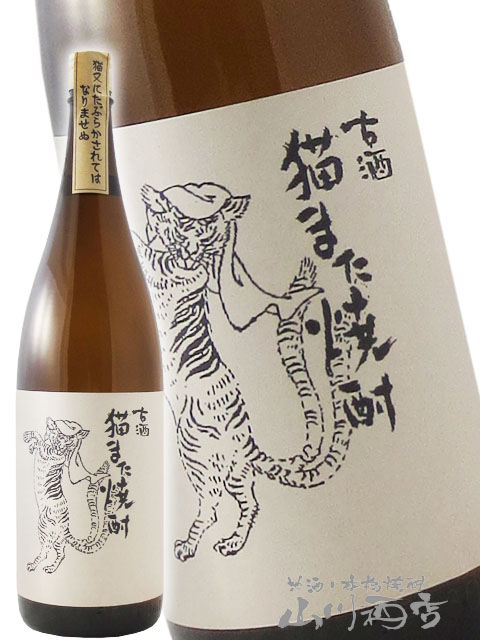 猫又にたぶらかされては
なりませぬ
古酒
猫また焼酎
古酒
猫また焼酎
地酒・本格焼酎
山川酒店